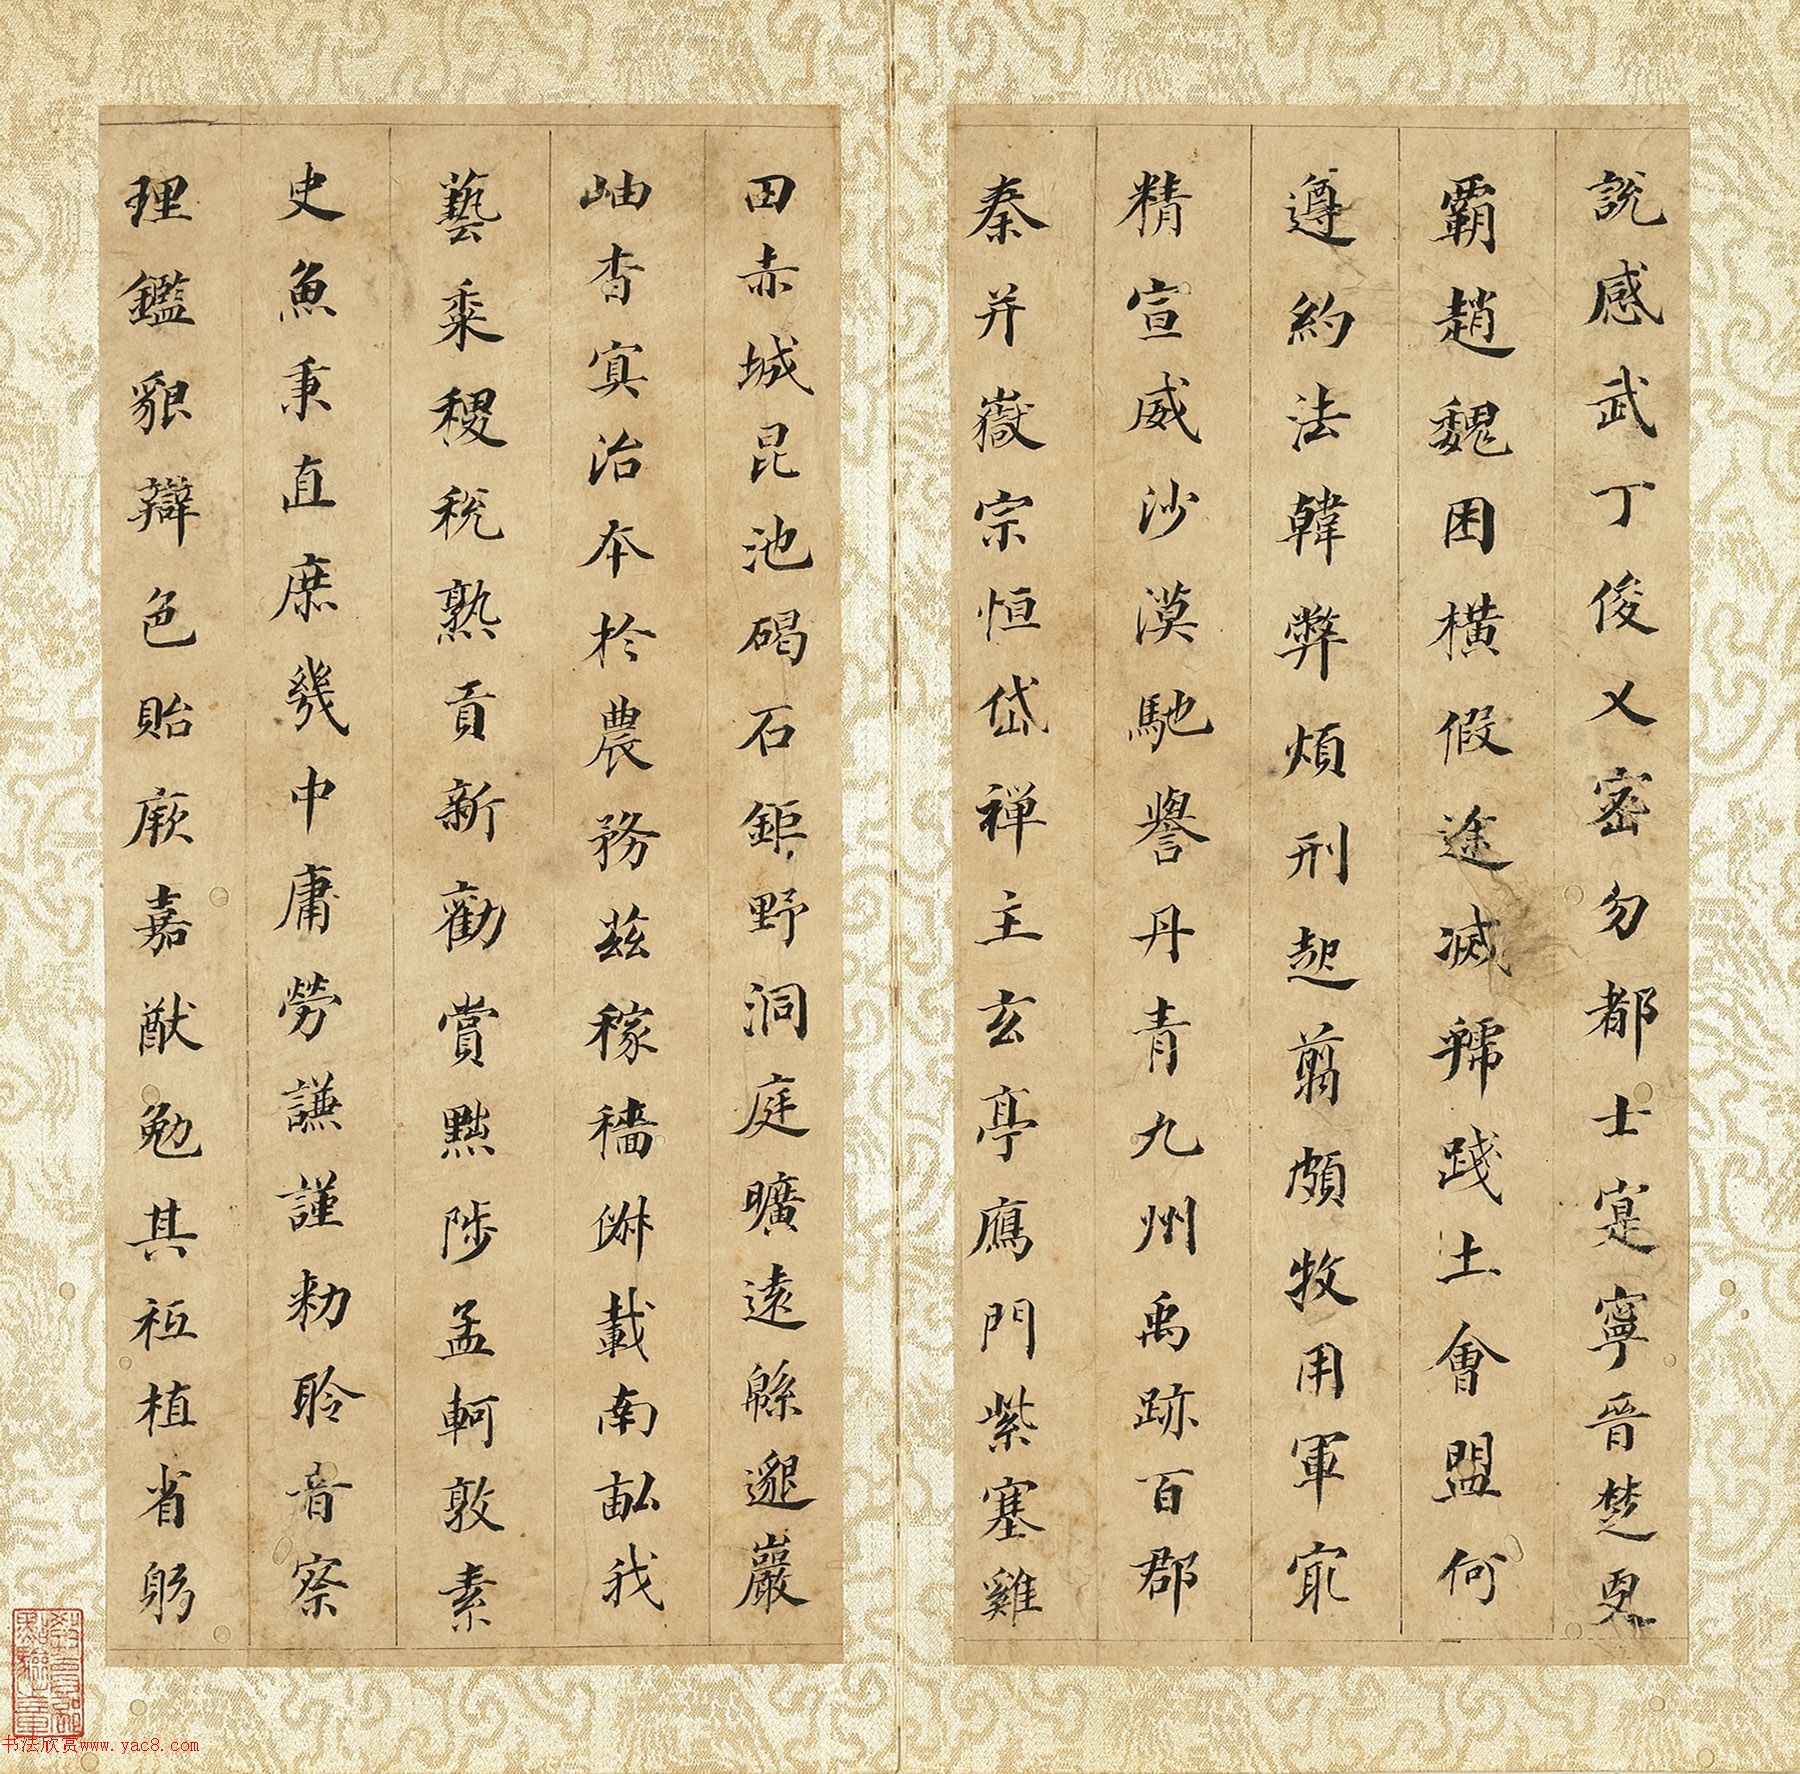 說感武丁俊乂密勿都士寔寧晉楚更
霸趙魏困橫假途滅虢踐土會盟何
遵約法韓弊煩刑起翦頗牧用軍最
精宣威沙漠馳譽丹青九州禹跡百郡
秦并嶽宗恒岱禪主玄亭鴈門紫塞雞
田赤城昆池碣石鉅野洞庭曠遠緜邈巖
岫杳冥治本於農務茲稼穡俶載南畝我
藝黍稷稅熟貢新勸賞黜陟孟軻敦素
史魚秉直庶幾中庸勞謙謹勑聆音察
理鑑貌辯色貽厥嘉猷勉其祗植省躬
书法欣赏www.yac8.com